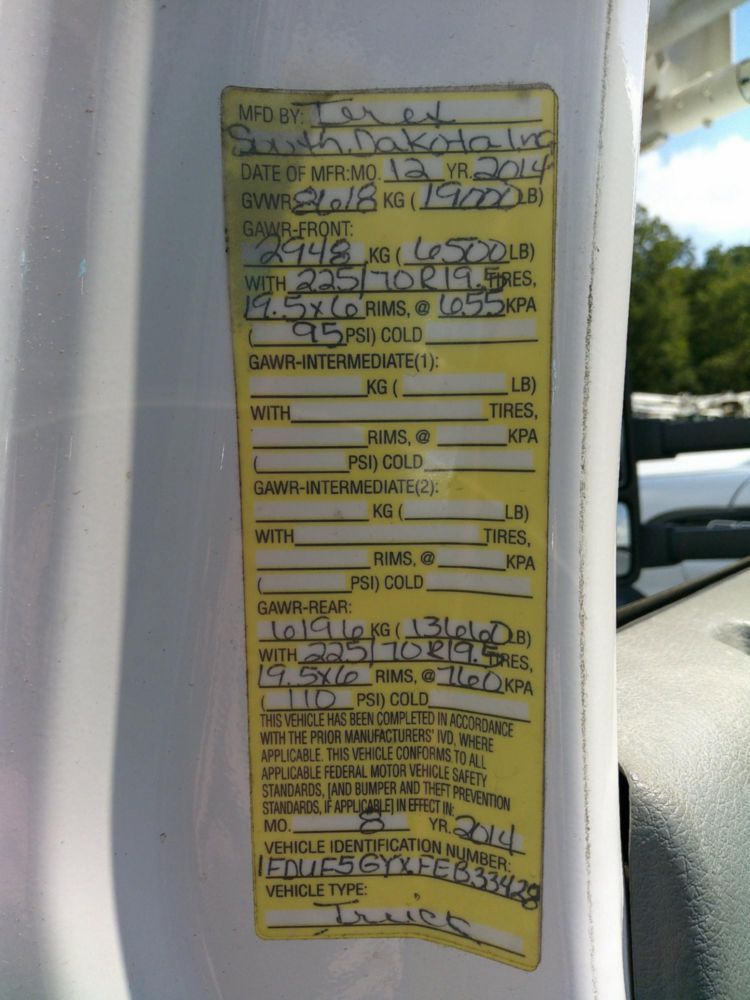 MFD BY: Terex
South Dakota Inc
DATE OF MFR: MO. 12 YR. 2014
GVWR 8618 KG (19000 LB)
GAWR-FRONT:
2948 KG (6500 LB)
WITH 225/70R19.5 TIRES,
19.5x6 RIMS, @ 655 KPA
(95 PSI) COLD
GAWR-INTERMEDIATE(1):
KG ( LB)
WITH TIRES,
RIMS, @ KPA
( PSI) COLD
GAWR-INTERMEDIATE(2):
KG ( LB)
WITH TIRES,
RIMS, @ KPA
( PSI) COLD
GAWR-REAR:
6196 KG (13660 LB)
WITH 225/70R19.5 TIRES,
19.5x6 RIMS, @ 760 KPA
(110 PSI) COLD
THIS VEHICLE HAS BEEN COMPLETED IN ACCORDANCE
WITH THE PRIOR MANUFACTURERS' IVD, WHERE
APPLICABLE. THIS VEHICLE CONFORMS TO ALL
APPLICABLE FEDERAL MOTOR VEHICLE SAFETY
STANDARDS, [AND BUMPER AND THEFT PREVENTION
STANDARDS, IF APPLICABLE] IN EFFECT IN:
MO. 8 YR. 2014
VEHICLE IDENTIFICATION NUMBER:
1FDUF5GYXFEB33428
VEHICLE TYPE:
Truck